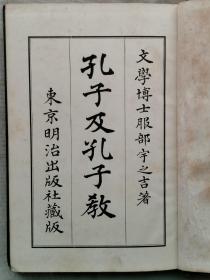 文學博士服部宇之吉著
孔子及孔子教
東京明治出版社藏版